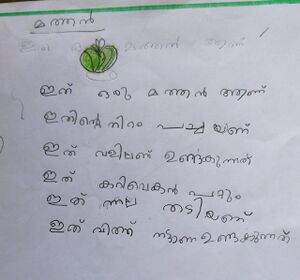 മത്തൻ
ഇത് ഒരു മത്തൻ ആണ്
ഇത് ഒരു മത്തൻ ആണ്
ഇതിന്റെ നിറം പച്ചയണ്
ഇത് വള്ളിലണ് ഉണ്ടകുന്നത്
ഇത് കറിവെകൻ പറ്റും
ഇത് നല്ല തടിയണ്
ഇത് വിത്ത് നട്ടാണ ഉണ്ടകുന്നത്